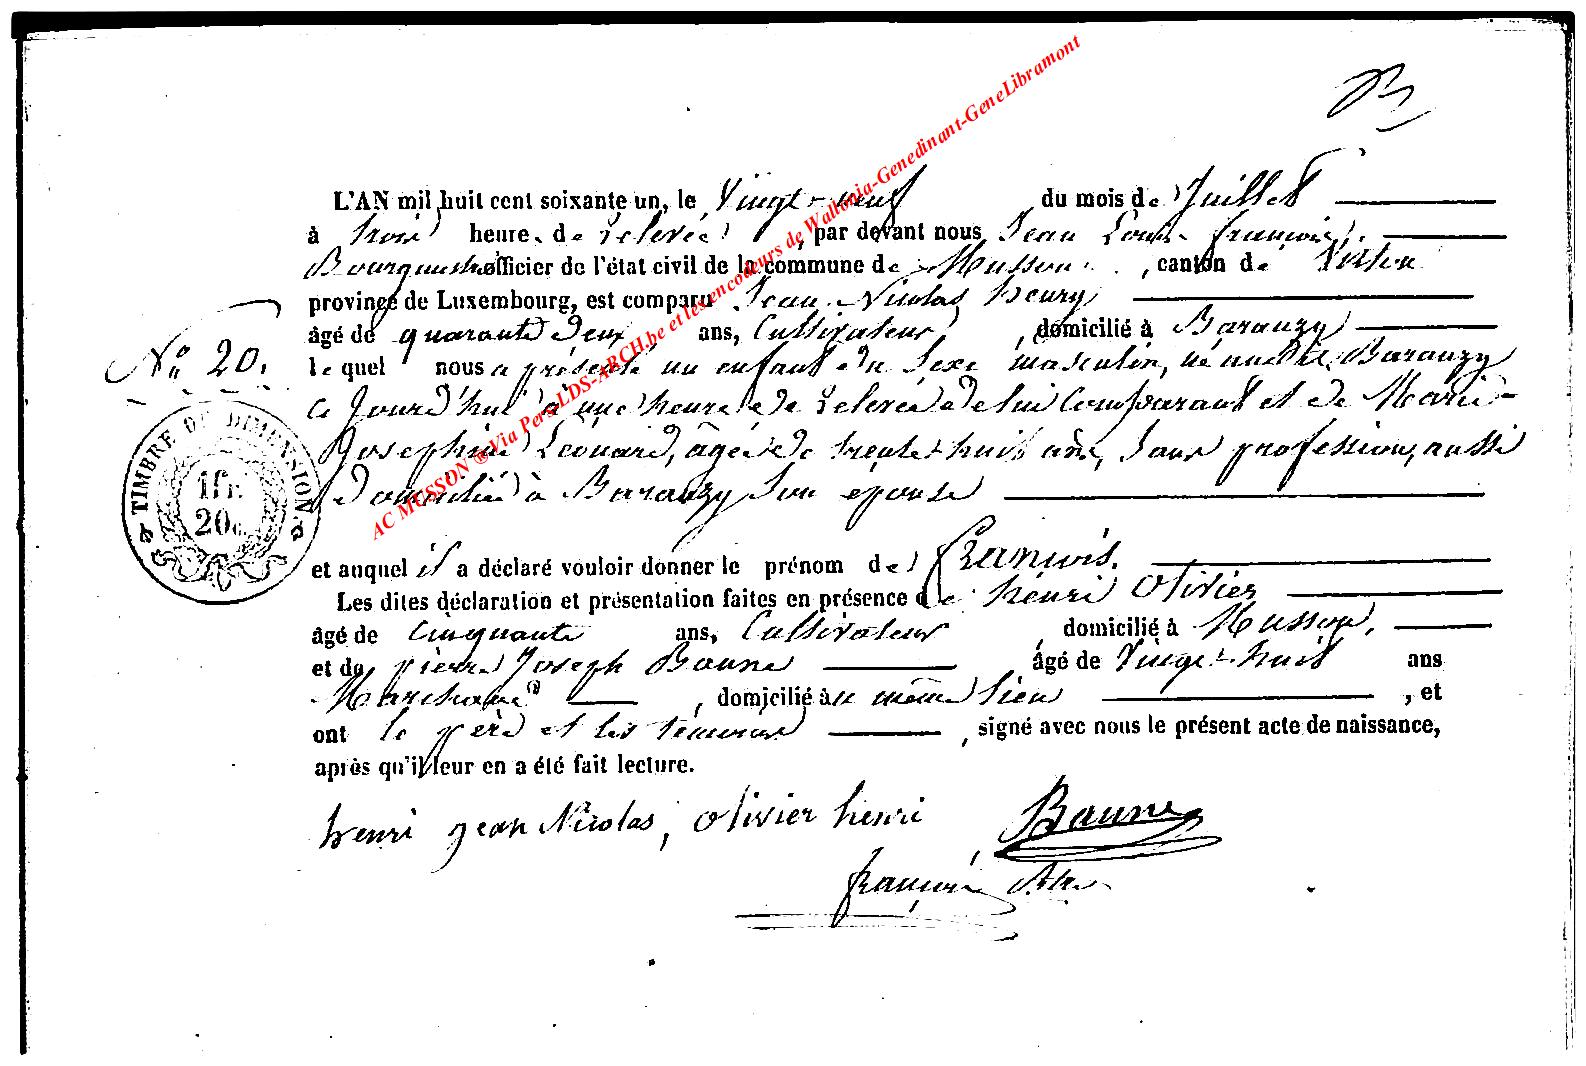 L'AN mil huit cent soixante un, le Vingt-neuf du mois de Juillet
à trois heures de relevée, par devant nous Jean Louis François,
Bourgmestre officier de l'état civil de la commune de Musson, canton de Virton
province de Luxembourg, est comparu Jean Nicolas henry
âgé de quarante deux ans, Cultivateur, domicilié à Baranzy
No 20.
le quel nous a présenté un enfant du sexe masculin, né audit Baranzy
ce jourd'hui à une heure de relevée de lui Comparant et de Marie
TIMBRE DE DIMENSION
1fr.
20c.
Josephine Léonard, âgée de trente-huit ans, sans profession, aussi
domiciliée à Baranzy son épouse
et auquel il a déclaré vouloir donner le prénom de François.
Les dites déclaration et présentation faites en présence de henri Olivier
âgé de Cinquante ans, Cultivateur, domicilié à Musson,
et de pierre Joseph Baune âgé de Vingt-huit ans
Marchand, domicilié au même lieu, et
ont le père et les témoins, signé avec nous le présent acte de naissance,
après qu'il leur en a été fait lecture.
henri jean Nicolas, Olivier henri, Baune
françois
AC MUSSON ® Via Pers.LDS-ARCH.be et les encodeurs de Wallonia-Genedinant-GeneLibramont